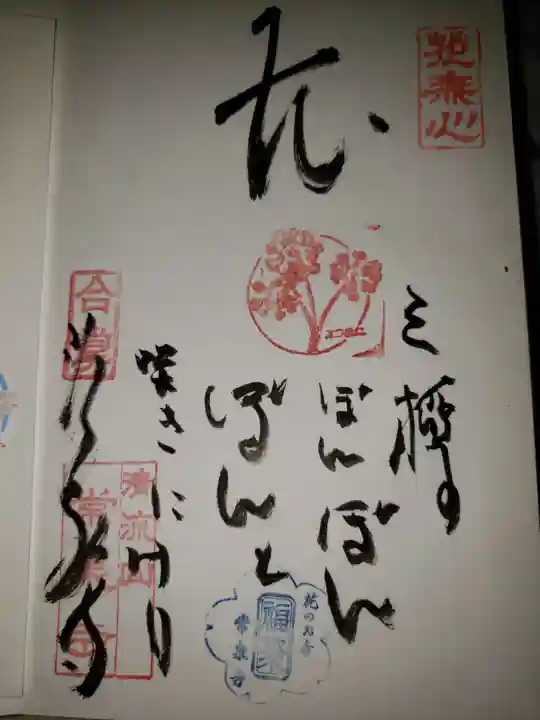 花無心
花
三椏の
ぼんぼん
ぼんと
咲きにけり
合掌
清流山
常泉寺
常泉寺
花のお寺
常泉寺